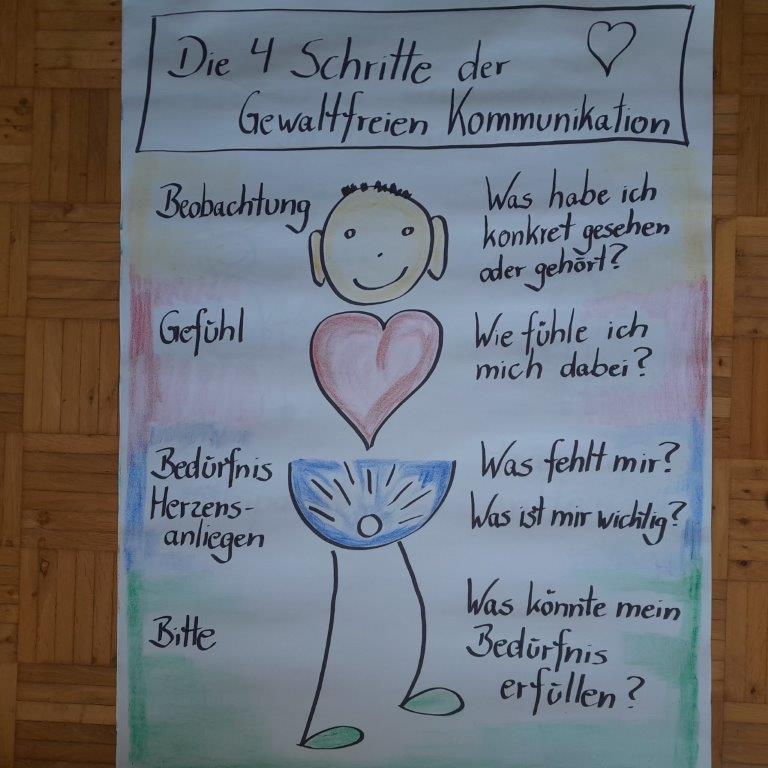 Die 4 Schritte der
Gewaltfreien Kommunikation
Beobachtung
Was habe ich
konkret gesehen
oder gehört?
Gefühl
Wie fühle ich
mich dabei?
Bedürfnis
Herzens-
anliegen
Was fehlt mir?
Was ist mir wichtig?
Bitte
Was könnte mein
Bedürfnis
erfüllen?